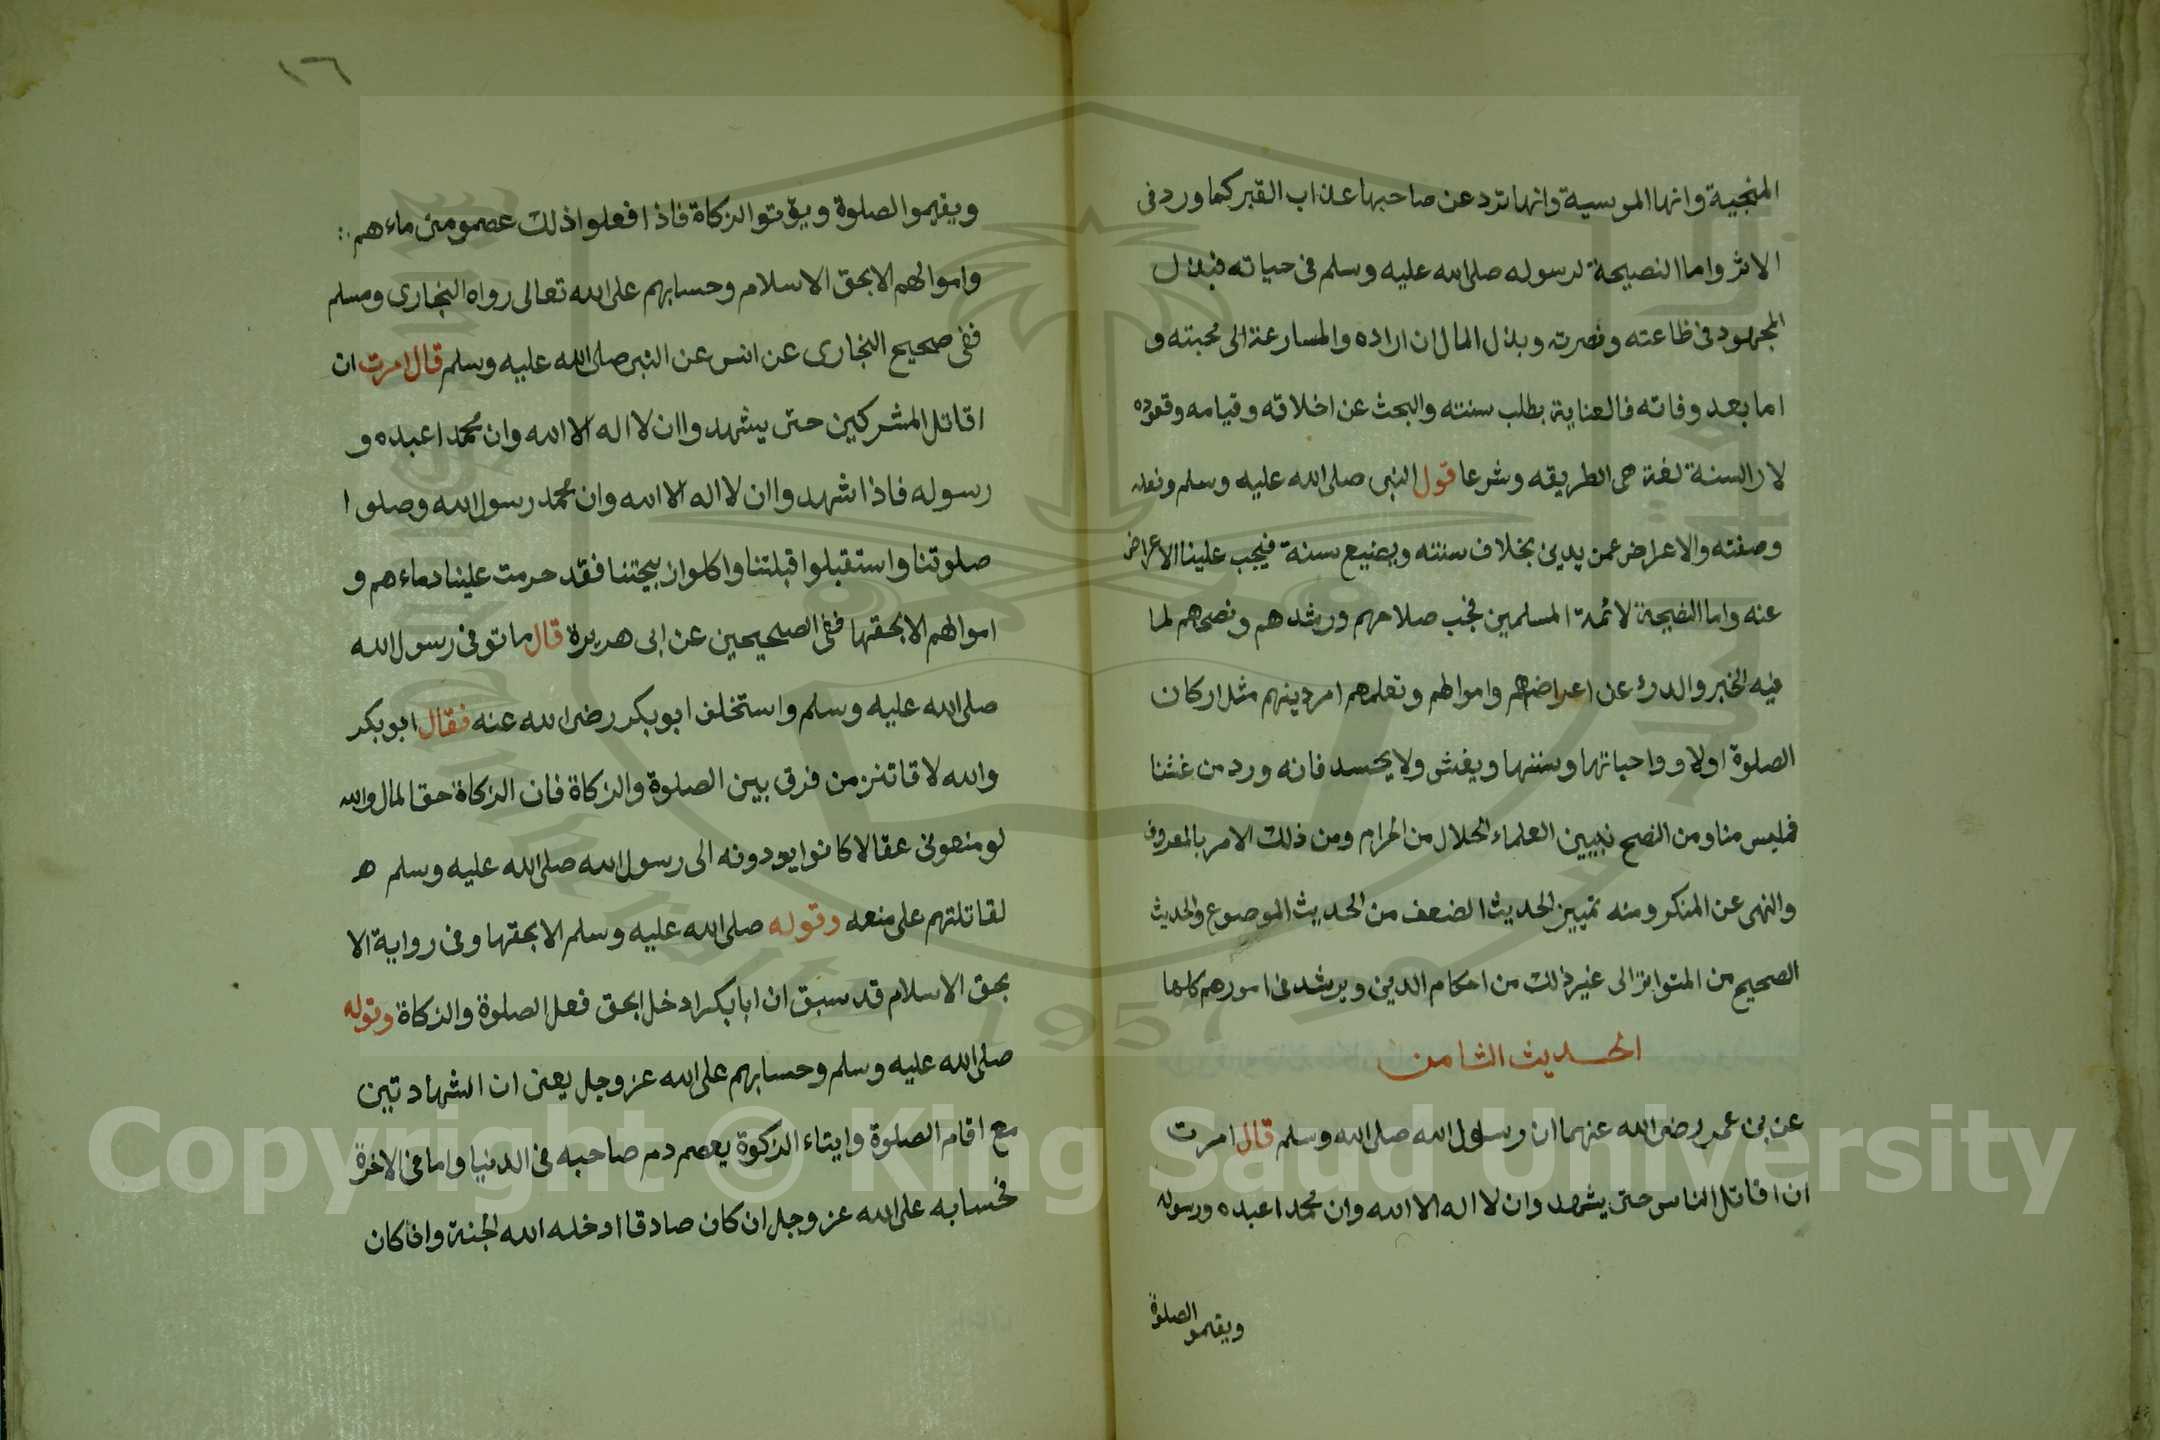 المنجية وانها الموسية وانها ترد عن صاحبها عذاب القبر كما ورد فى
الاثر واما النصيحة لرسوله صلى الله عليه وسلم فى حياته فبذل
المجهود فى طاعته ونصرته وبذل المال ان اراده والمسارعة الى محبته و
اما بعد وفاته فالعناية بطلب سنته والبحث عن اخلاقه وقيامه وقعوده
لان السنة لغة هى الطريقه وشرعا قول النبى صلى الله عليه وسلم وفعله
وصفته والاعراض عمن يدين بخلاف سنته ويضيع سنة فيجب علينا الاعراض
عنه واما النضيحة لائمة المسلمين فحب صلاحهم ورشدهم ونصحهم لما
فيه الخير والدرؤ عن اعراضهم واموالهم وتعلمهم امر دينهم مثل اركان
الصلوة اولا وواحباتها وسننها ويغش ولا يحسد فانه ورد من غشنا
فليس منا ومن النصح نبيين العلماء الحلال من الحرام ومن ذلك الامر بالمعروف
والنهى عن المنكر ومنه تمييز الحديث الضعف من الحديث الموصوع والحديث
الصحيح من المتواتر الى غير ذلك من احكام الدين ويرشد فى امورهم كلها
الحديث الثامن
عن بن عمر رضى الله عنهما ان رسول الله صلى الله وسلم قال امرت
ان اقاتل الناس حتى يشهد وان لا اله الا الله وان محمدا عبده ورسوله
ويقيمو الصلوة
١٦
ويقيموا الصلوة ويؤتو الزكاة فاذا فعلوا ذلك عصمو منى ماءهم
واموالهم الا بحق الاسلام وحسابهم على الله تعالى رواه البخارى ومسلم
ففى صحيح البخارى عن انس عن النبى صلى الله عليه وسلم قال امرت ان
اقاتل المشركين حتى يشهد واان لا اله الا الله وان محمدا عبده و
رسوله فاذا شهد واان لا اله الا الله وان محمد رسول الله وصلوا
صلوتنا واستقبلوا قبلتنا واكلوا ذبيحتنا فقد حرمت علينا دماءهم و
اموالهم الا بحقها ففى الصحيحين عن ابى هريرة قال ما توفى رسول الله
صلى الله عليه وسلم واستخلف ابو بكر رضى الله عنه فقال ابو بكر
والله لا قاتنن من فرق بين الصلوة والزكاة فان الزكاة حق المال والله
لو منعونى عقالا كانوا يودونه الى رسول الله صلى الله عليه وسلم ه
لقاتلتهم على منعه وقوله صلى الله عليه وسلم الا بحقها وفى رواية الا
بحق الاسلام قد سبق ان ابا بكر ادخل ابحق فعل الصلوة والزكاة وقوله
صلى الله عليه وسلم وحسابهم على الله عز وجل يعنى ان الشهادتين
مع اقام الصلوة وايتاء الزكوة يعصم دم صاحبه فى الدنيا واما فى الاخرة
فحسابه على الله عز وجل ان كان صادقا ادخله الله الجنة وان كان
Copyright © King Saud University
1957